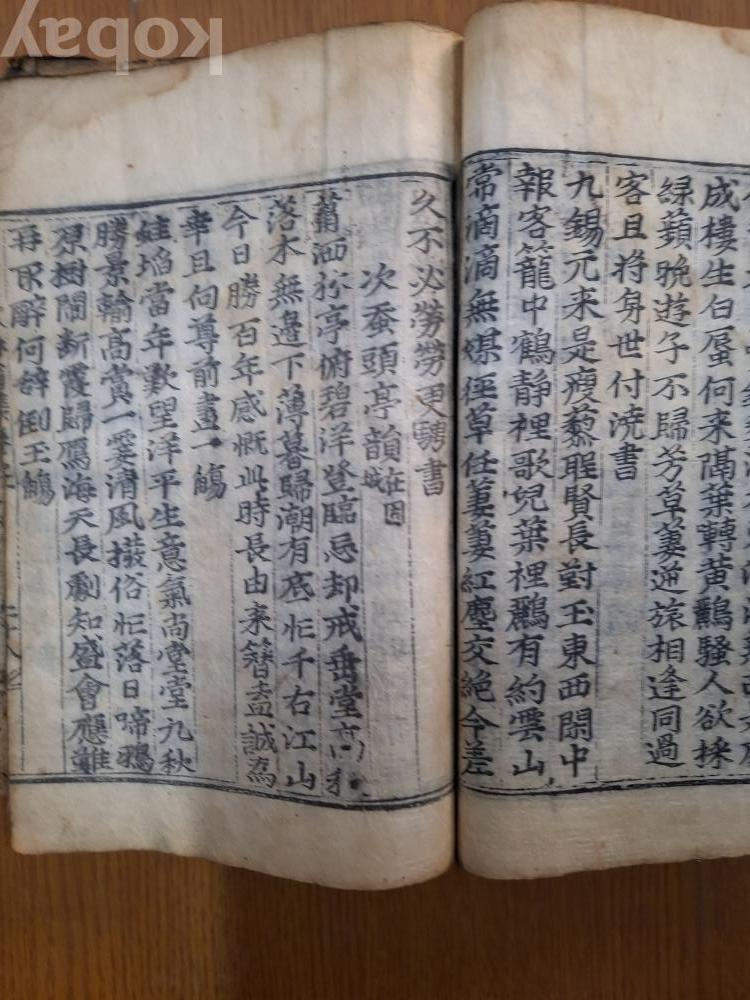 成樓生白蜃何来隔葉轉黃鸝騷人欲採
綠蘋晚遊子不歸芳草萋逆旅相逢同過
客且將身世付澆書
九錫元来是瘦藜聖賢長對玉東西閑中
報客籠中鶴靜裡歌兒葉裡鸝有約雲山
常滴滴無媒徑草任萋萋紅塵交絶今差
久不必勞勞更騁書
次蚕頭亭韻在因城
蕭洒松亭俯碧洋登臨忌却戒垂堂髙秋
落木無邊下薄暮歸潮有底忙千古江山
今日勝百年感慨此時長由来簪盍誠爲
幸且向尊前盡一觴
當年歎望洋平生意氣尚堂堂九秋
勝景輸高賞一霎清風撥俗忙落日啼鴉
原樹闇新霞歸鴈海天長劇知盛會應難
再不醉何辞倒玉觴
kobay